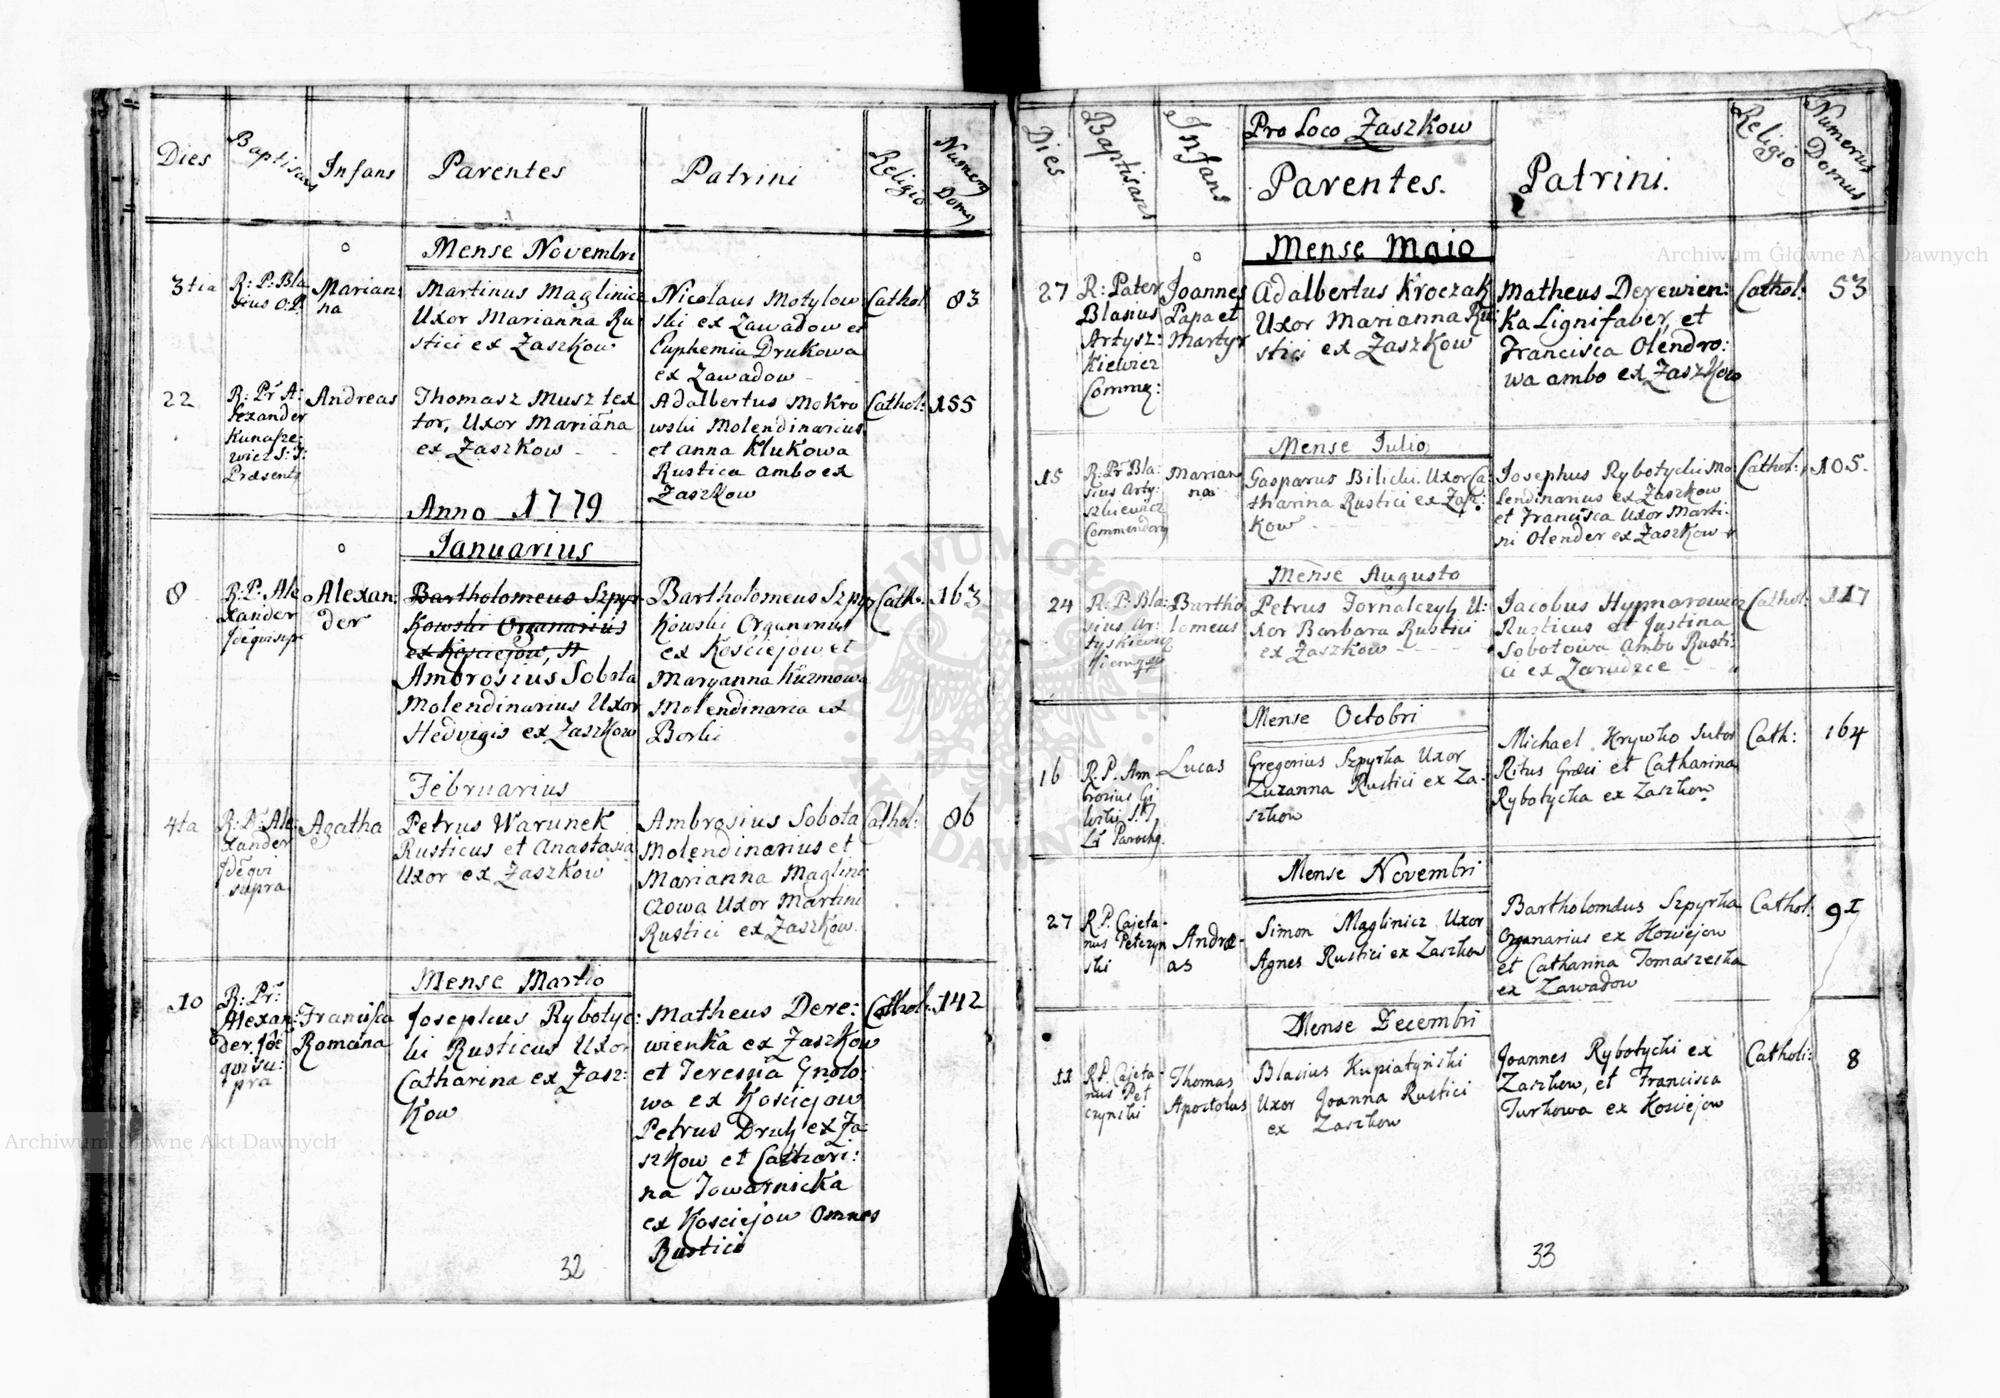 Dies
Baptisans
Infans
Parentes
Patrini
Religio
Numerq
Domq
Mense Novembri
3tia
R: P: Bla
sius O.P.
Marian:
na
Martinus Maglinicz
Uxor Marianna Ru
stici ex ZaszKow
Nicolaus Motylow
ski ex Zawadow et
Euphemia Drukowa
ex Zawadow
Cathol:
83
22
R: Pr A:
lexander
Kunasze:
wicz S: J:
Præsents
Andreas
Thomasz Musz tex
tor, Uxor Mariana
ex ZaszKow
Adalbertus Mokro
wski Molendinarius
et anna Klukowa
Rustica ambo ex
ZaszKow
Cathol:
155
Anno 1779
Ianuarius
8
R: P: Ale
xander
Alexan:
der
Bartholomeus Szpyr
Kowski Organarius
Ambrosius Sobota
Molendinarius Uxor
Hedvigis ex ZaszKow
Bartholomeus Szpyr
Kowski Organarius
ex Kościejow et
Maryanna Kuzmowa
Molendinaria ex
Borki
Cath:
163
Februarius
4ta
R: P: Ale
xander
Idē qvi
supra
Agatha
Petrus Warunek
Rusticus et Anastasia
Uxor ex ZaszKow
Ambrosius Sobota
Molendinarius et
Marianna Maglini
czowa Uxor Martini
Rustici ex ZaszKow.
Cathol:
86
Mense Martio
10
R: Pr:
Alexan:
der Idē
qvi su:
pra
Francisca
Romana
Josephus Rybotyc:
ki Rusticus Uxor
Catharina ex Zasz:
Kow
Matheus Dere:
wienka ex ZaszKow
et Teressia Gnoło
wa ex Kościejow
Petrus Druk ex Za:
szKow et Cathari:
na Towarnicka
ex Kosciejow Omnes
Rustici
Cathol:
142
32
Dies
Baptisans
Infans
Pro Loco ZaszKow
Parentes.
Patrini.
Religio
Numerus
Domus
Mense Maio
27
R: Pater
Blasius
Artysz:
Kiewicz
Comme:
Joannes
Papa et
Martyr
Adalbertus Kroczak
Uxor Marianna Ru
stici ex ZaszKow
Matheus Derewien:
Ka Lignifaber, et
Francisca Olendro:
wa ambo ex ZaszKow
Cathol:
53
Mense Iulio
15
R: Pr Bla:
sius Arty:
szkiewicz
Commendarq
Marian
na
Gasparus Bilicki Uxor Ca:
tharina Rustici ex Zasz:
Kow
Iosephus Rybotycki Mo
lendinarius ex Zaszkow
et Francisca Uxor Marti:
ni Olender ex ZaszKow
Cathol:
105.
Mense Augusto
24
R: P: Bla:
sius Ar:
tyskiewicz
Bartho
lomeus
Petrus Tornalczyk U:
xor Barbara Rustici
ex Zaszkow
Iacobus Hypnarowicz
Rusticus et Justina
Sobotowa Ambo Rusti:
ci ex Zarudzce
Cathol:
117
Mense Octobri
16
R. P. Am
brosius Gi
Lt Parochq.
Lucas
Gregorius Szpyrka Uxor
Zuzanna Rustici ex Za:
szkow
Michael Krywko Sutor
Ritus Græci et Catharina
Rybotycka ex Zaszkow
Cath:
164
Mense Novembri
27
R P. Cajeta-
nus Petczyn
ski
Andre-
as
Simon Maglinicz Uxor
Agnes Rustici ex Zaszkow
Bartholomæus Szpyrka
Organarius ex Kosciejow
et Catharina Tomaszeska
ex Zawadow
Cathol:
91
Mense Decembri
11
R P. Cajeta-
nus Pet
czynski
Thomas
Apostolus
Blasius Kupiatynski
Uxor Joanna Rustici
ex Zaszkow
Joannes Rybotycki ex
Zaszkow, et Francisca
Turkowa ex Kosciejow
Catholi:
8
33
Archiwum Główne Akt Dawnych
Archiwum Główne Akt Dawnych
ARCHIWUM GŁÓWNE AKT DAWNYCH